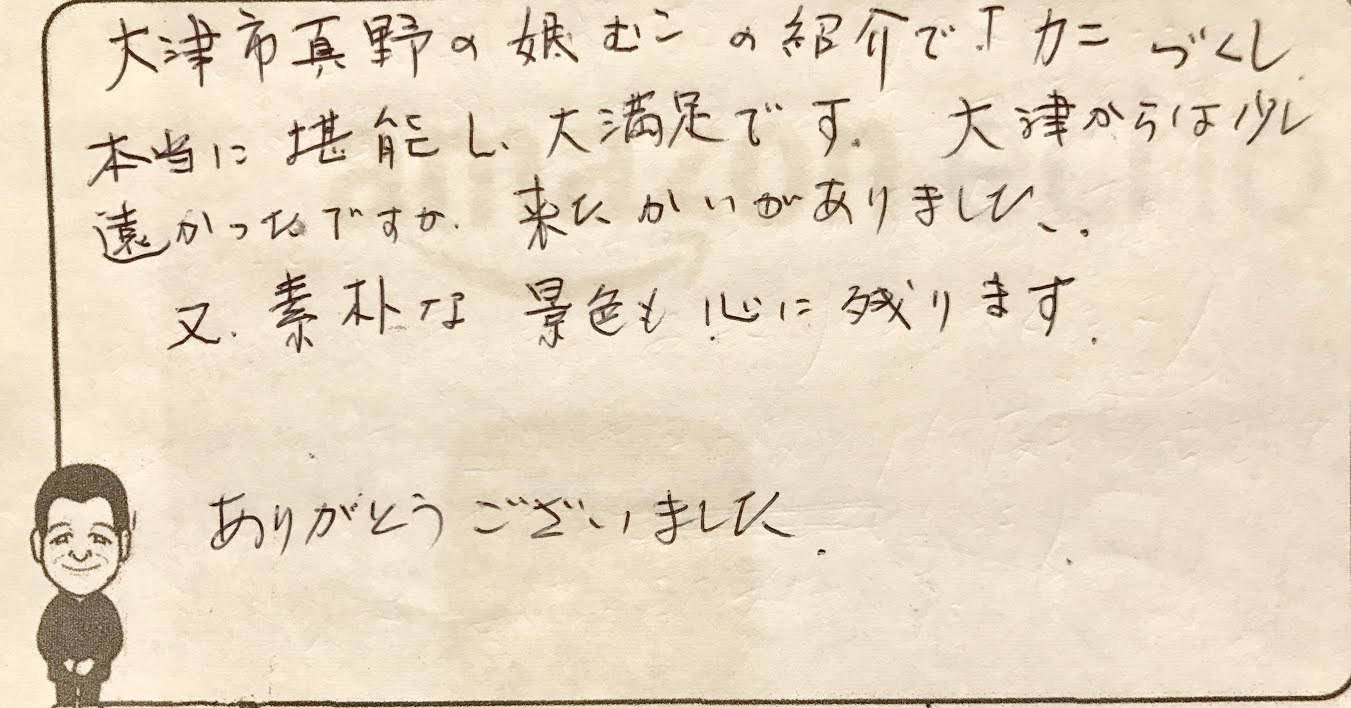 大津市真野の娘むこの紹介で「カニづくし
本当に堪能し、大満足です。大津からは少し
遠かったですが、来たかいがありました。
又、素朴な景色も心に残ります。
ありがとうございました。